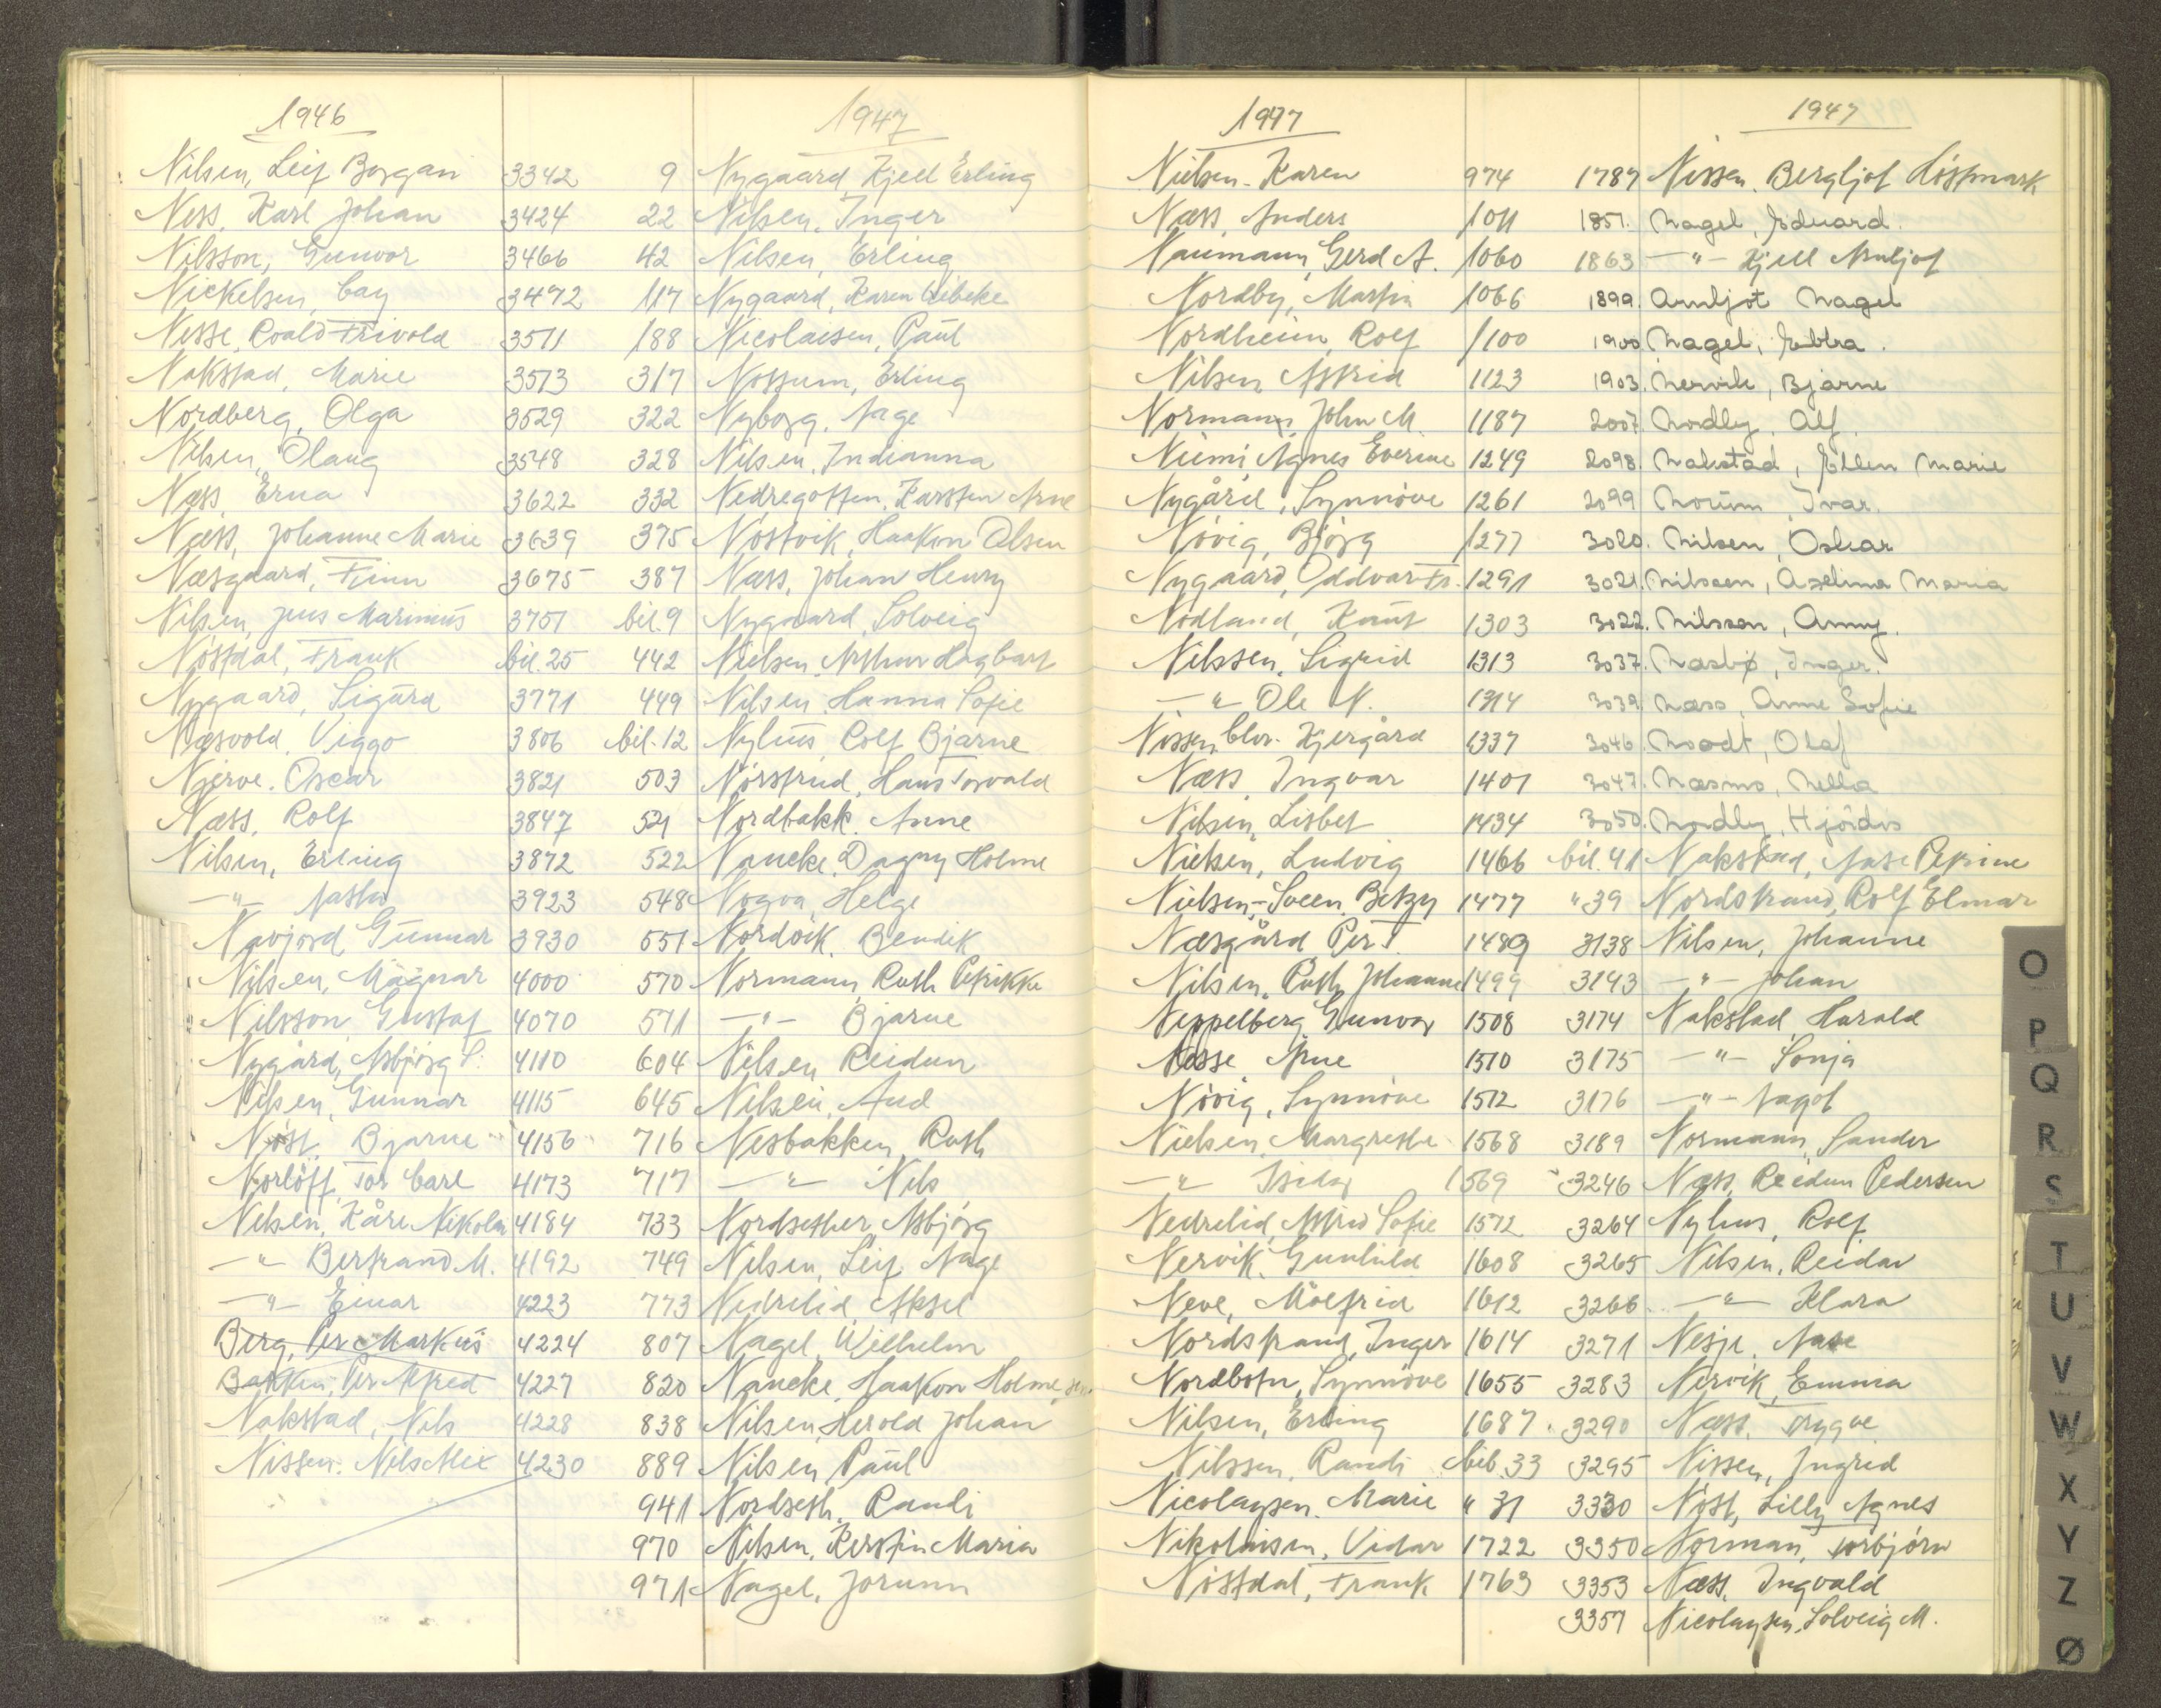 1946
Nilsen, Leif Borgan 3342
Ness, Karl Johan 3424
Nilsson, Gunvor 3466
Nickelsen, Cay 3472
Nesse, Roald Frivold 3511
Nakstad, Marie 3513
Nordberg, Olga 3529
Nilsen, Olaug 3548
Næss, Erna 3622
Næss, Johanne Marie 3639
Næsgaard, Finn 3675
Nilsen, Jens Marinius 3751
Nöstdal, Frank bil. 25
Nygaard, Sigurd 3771
Næsvold, Viggo 3806
Njerve, Oscar 3821
Næss, Rolf 3847
Nilsen, Erling 3872
-"- Aasta 3923
Navjord Gunnar 3930
Nilsen, Magnar 4000
Nilsson Gustaf 4070
Nygård, Asbjörg S. 4110
Nilsen, Gunnar 4115
Nöst, Bjarne 4156
Norlöff, Tor Carl 4173
Nilsen, Kåre Nikolai 4184
-"- Bertrand M. 4192
-"- Einar 4223
Berg, Per Markus 4224
Bakken, Per Alfred 4227
Nakstad, Nils 4228
Nissen, Nils Alex 4230
1947
9 Nygaard, Kjell Erling
22 Nilsen, Inger
42 Nilsen, Erling
117 Nygaard, Karen Wibeke
188 Nicolaisen, Paul
317 Nossum, Erling
322 Nyborg, Aage
328 Nilsen, Indianna
332 Nedregotten, Karsten Arne
375 Nöstvik, Haakon Olsen
387 Næss, Johan Henry
bil. 9 Nygaard, Solveig
442 Nielsen, Arthur Hagbart
449 Nilsen, Hanna Sofie
bil. 12 Nylius, Rolf Bjarne
503 Nörstrud, Hans Torvald
521 Nordbakk, Anne
522 Naucke, Dagny Holme
548 Nogva, Helge
551 Nordvik, Bendik
570 Normann, Ruth Petrikke
571 -"- Bjarne
604 Nilsen, Reidun
645 Nilsen, Aud
716 Nesbakken, Ruth
717 -"- Nils
733 Nordsether, Asbjörg
749 Nilsen, Leif Aage
773 Nedrelid, Aksel
807 Nagel, Wilhelm
820 Naucke, Haakon Holme, sen.
838 Nilsen, Herold Johan
889 Nilsen, Paul
941 Nordseth, Randi
970 Nilsen, Kerstin Maria
971 Nagel, Jorunn
1947
Nielsen, Karen 974
Næss, Anders 1011
Naumann, Gerd A. 1060
Nordby, Martin 1066
Nordheim, Rolf 1100
Nilsen, Astrid 1123
Normann, John M. 1187
Niemi Agnes Everine 1249
Nygård, Synnöve 1261
Növig, Björg 1277
Nygaard, Oddvar Fr. 1291
Nödland, Knut 1303
Nilssen, Sigrid 1313
-"- Ole N. 1314
Nissen, Chr. Kjergård 1337
Næss, Ingvar 1401
Nilsen, Lisbet 1434
Nielsen, Ludvig 1466
Nielsen-Sveen, Betzy 1477
Næsgård Per I. 1489
Nilsen, Ruth Johanne 1499
Neppelberg, Gunvor 1508
Nesse Arne 1510
Növig, Synnöve 1512
Nielsen, Margrethe 1568
-"- Isidor 1569
Nedrelid, Astrid Sofie 1572
Nervik, Gunhild 1608
Neve, Målfrid 1612
Nordstrand, Inger 1614
Nordbotn, Synnöve 1655
Nilsen, Erling 1687
Nilssen, Randi bil. 33
Nicolaysen, Marie " 31
Nikolaisen, Vidar 1722
Nöstdal, Frank 1763
1947
1787 Nissen, Bergljot Löstmark
1851. Nagel, Edvard.
1863 -"- Kjell Arnljot
1899. Arnljot Nagel
1900 Nagel, Ebba.
1903. Nervik, Bjarne
2007. Nordby, Alf.
2098. Nakstad, Ellen Marie
2099 Norum, Ivar.
3020. Nilsen, Oskar
3021. Nilssen, Axelina Maria
3022. Nilssen, Anny.
3037. Næsbø, Inger.
3039 Næss, Anne Sofie
3046. Noodt, Olaf
3047. Næsmo, Nella
3050. Nordby, Hjördis
bil. 41 Nakstad, Aase Petrine
" 39 Nordstrand, Rolf Elmar
3138 Nilsen, Johanne
3143 -"- Johan
3174 Nakstad, Harald
3175 -"- Sonja
3176 -"- Aagot
3189 Normann, Sander
3246 Næss, Reidun Pedersen
3264 Nyhus, Rolf
3265 Nilsen, Reidar
3266 -"- Klara
3271 Nesje, Aase
3283 Nervik, Emma
3290 Næss, Trygve
3295 Nissen, Ingrid
3330 Nöst, Lilly Agnes
3350 Norman, Torbjörn
3353 Næss, Ingvald
3357 Nicolaysen, Solveig M.
O
P
Q
R
S
T
U
V
W
X
Y
Z
Ø